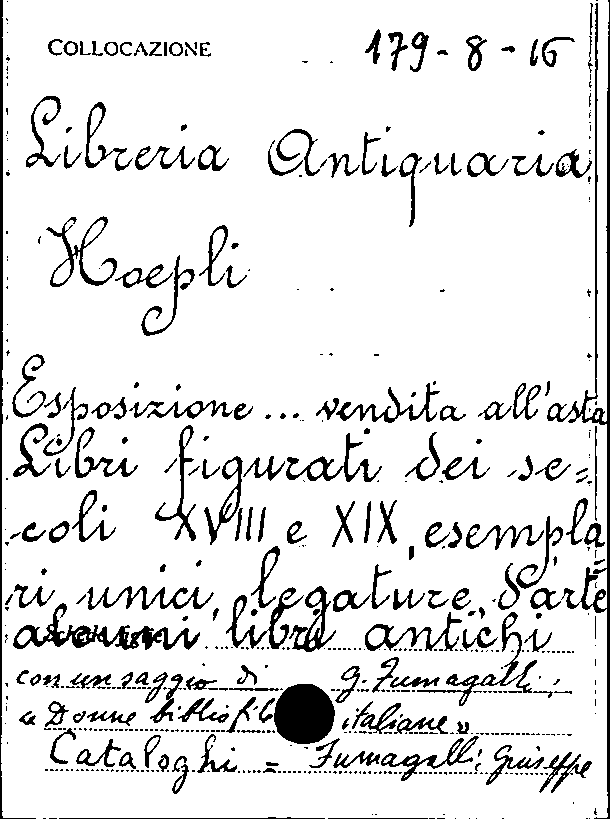 COLLOCAZIONE 179-8-16
Libreria Antiquaria
Hoepli
Esposizione... vendita all'asta
Libri figurati dei se=
coli XVIII e XIX, esempla
ri unici, legature d'arte
alcuni libri antichi
con un saggio di G. Fumagalli:
"Donne bibliofile italiane"
Cataloghi = Fumagalli, Giuseppe